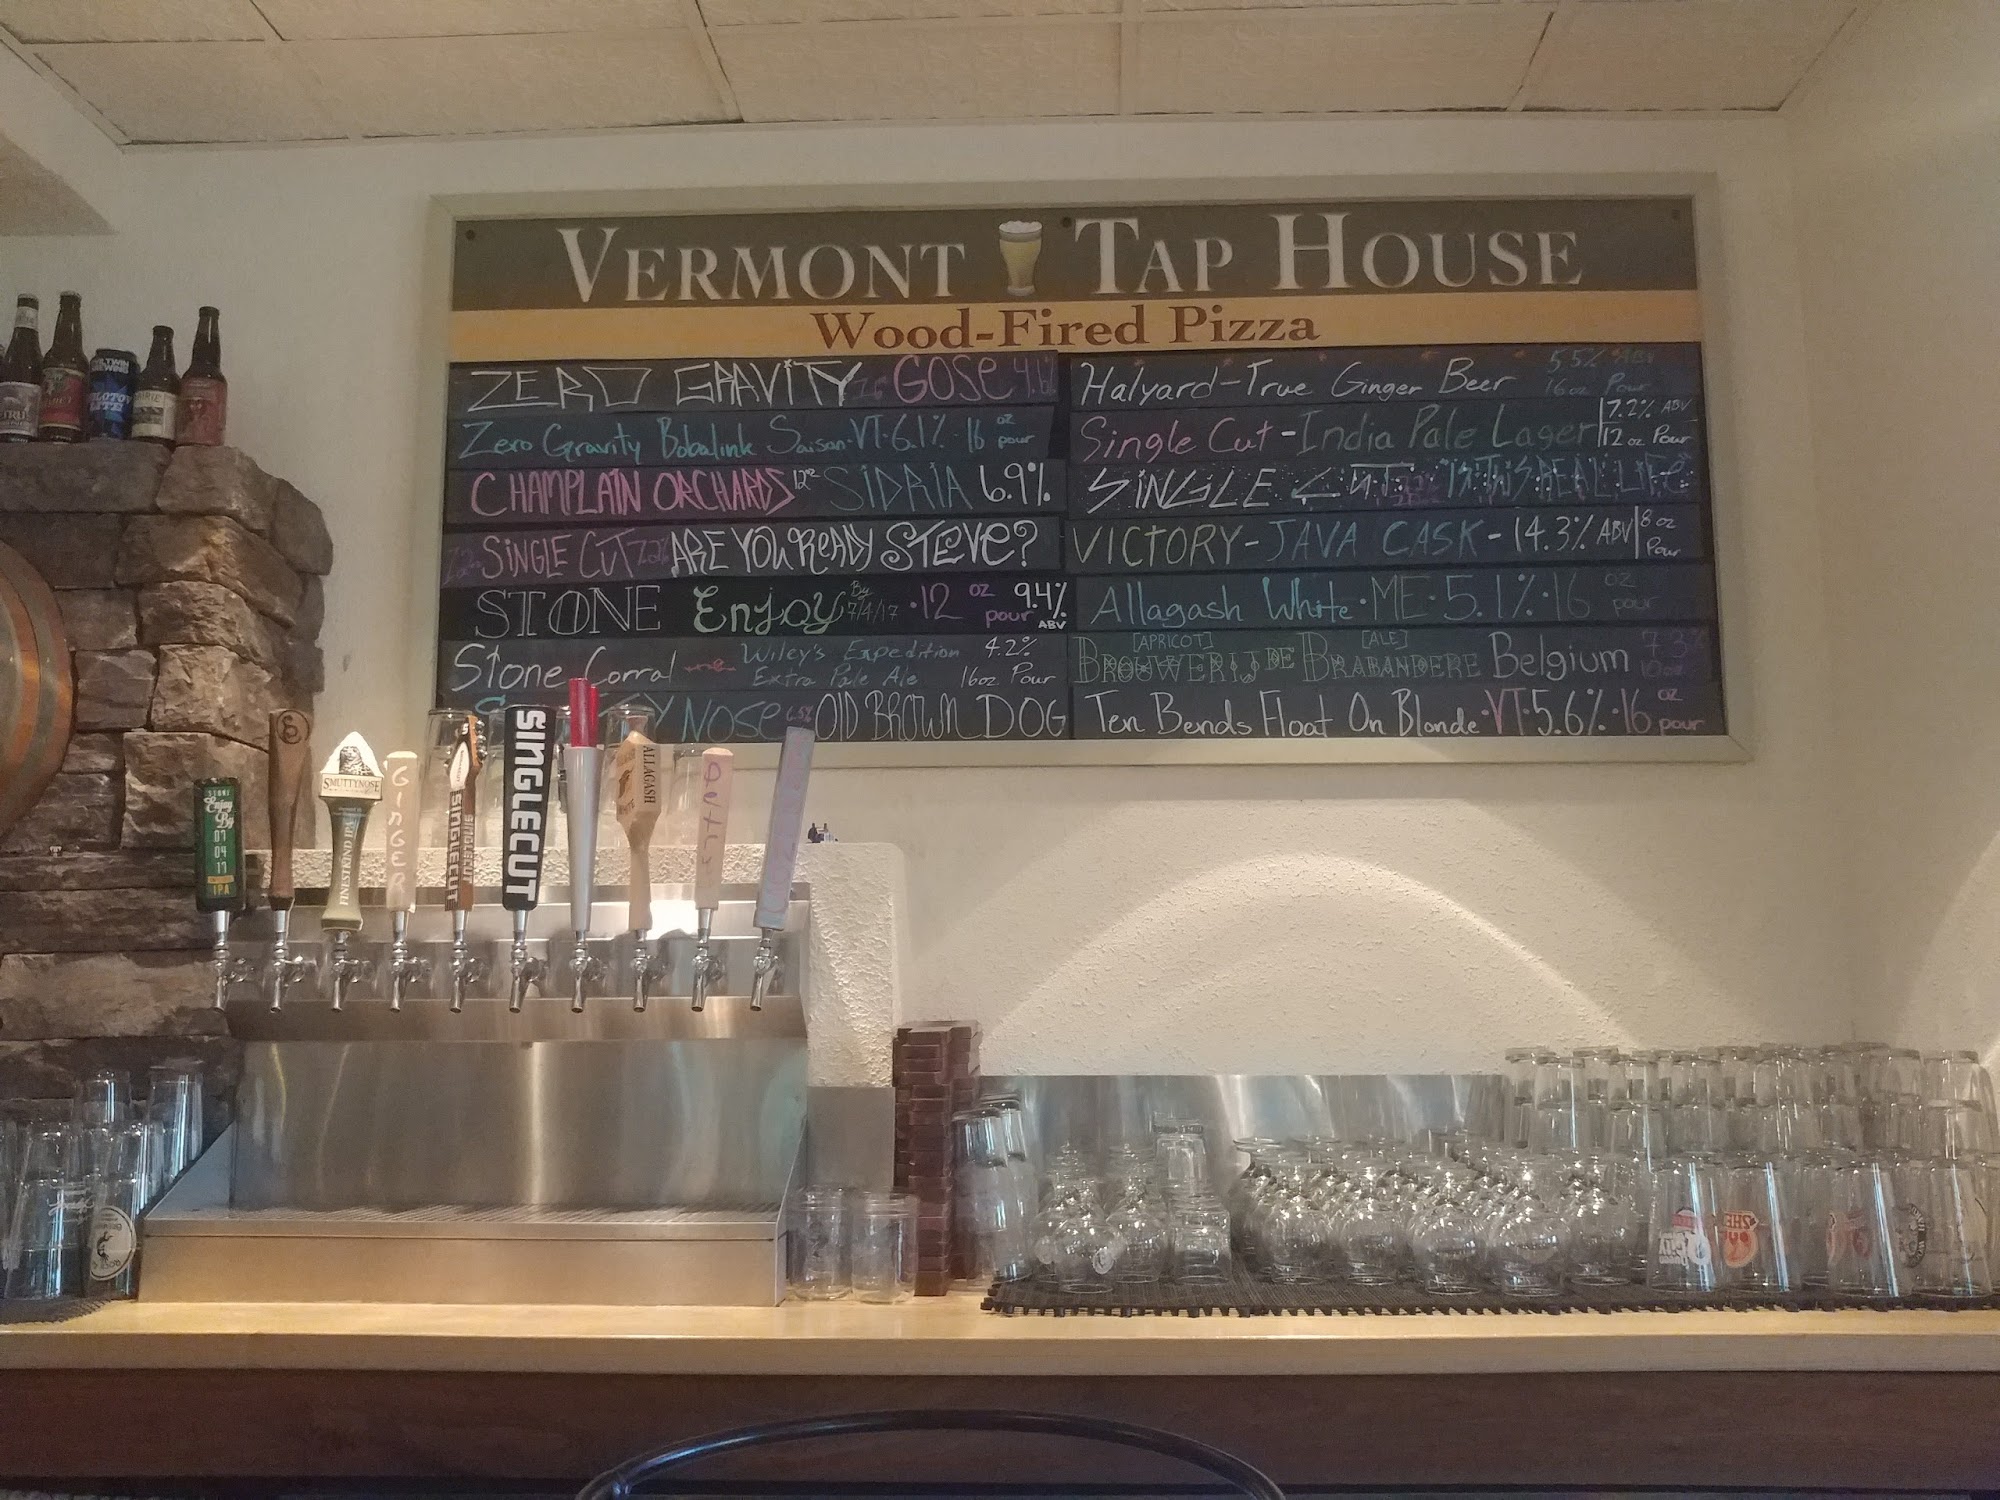 VERMONT TAP HOUSE
Wood-Fired Pizza
ZERO GRAVITY GOSE 4.6%
Zero Gravity Bobalink Saison · VT · 6.1% · 16 oz pour
CHAMPLAIN ORCHARDS 12oz SIDRIA 6.9%
12oz SINGLE CUT 7.2% ARE YOU READY STEVE?
STONE Enjoy By 7/4/17 · 12 oz pour 9.4% ABV
Stone Corral Wiley's Expedition Extra Pale Ale 4.2% 16oz Pour
NOSE OLD BROWN DOG
Halyard - True Ginger Beer 5.5% ABV 16oz Pour
Single Cut - India Pale Lager 7.2% ABV 12oz Pour
SINGLE CUT "IS THIS REAL LIFE"
VICTORY - JAVA CASK - 14.3% ABV 8oz Pour
Allagash White · ME · 5.1% · 16 oz pour
BROUWERIJ DE BRABANDERE [APRICOT] [ALE] Belgium 7.3% 10oz
Ten Bends Float On Blonde · VT · 5.6% · 16 oz pour
STONE Enjoy By 07 04 17 IPA
SMUTTYNOSE
FINESTKIND IPA
GINGER
SINGLECUT
SINGLECUT
SINGLECUT
ALLAGASH
WHITE